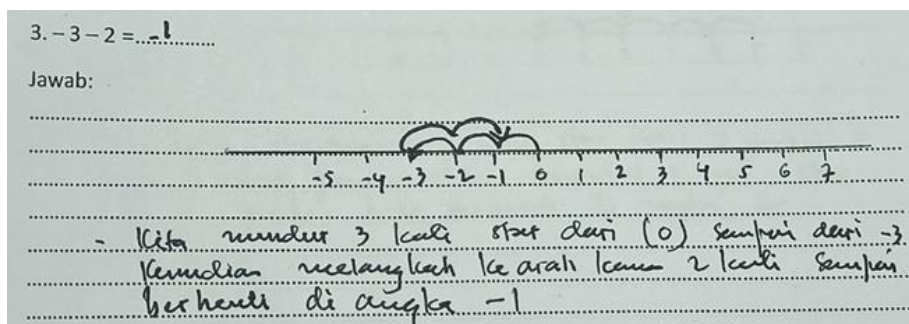 3. – 3 – 2 = ...-1...
Jawab:
-5 -4 -3 -2 -1 0 1 2 3 4 5 6 7
- Kita mundur 3 kali start dari (0) sampai dari -3
Kemudian melangkah ke arah kanan 2 kali sampai
berhenti di angka -1